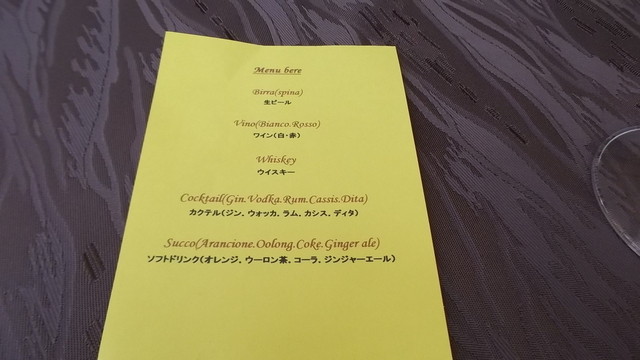 Menu bere
Birra(spina)
生ビール
Vino(Bianco.Rosso)
ワイン(白・赤)
Whiskey
ウイスキー
Cocktail(Gin.Vodka.Rum.Cassis.Dita)
カクテル(ジン、ウォッカ、ラム、カシス、ディタ)
Succo(Arancione.Oolong.Coke.Ginger ale)
ソフトドリンク(オレンジ、ウーロン茶、コーラ、ジンジャーエール)